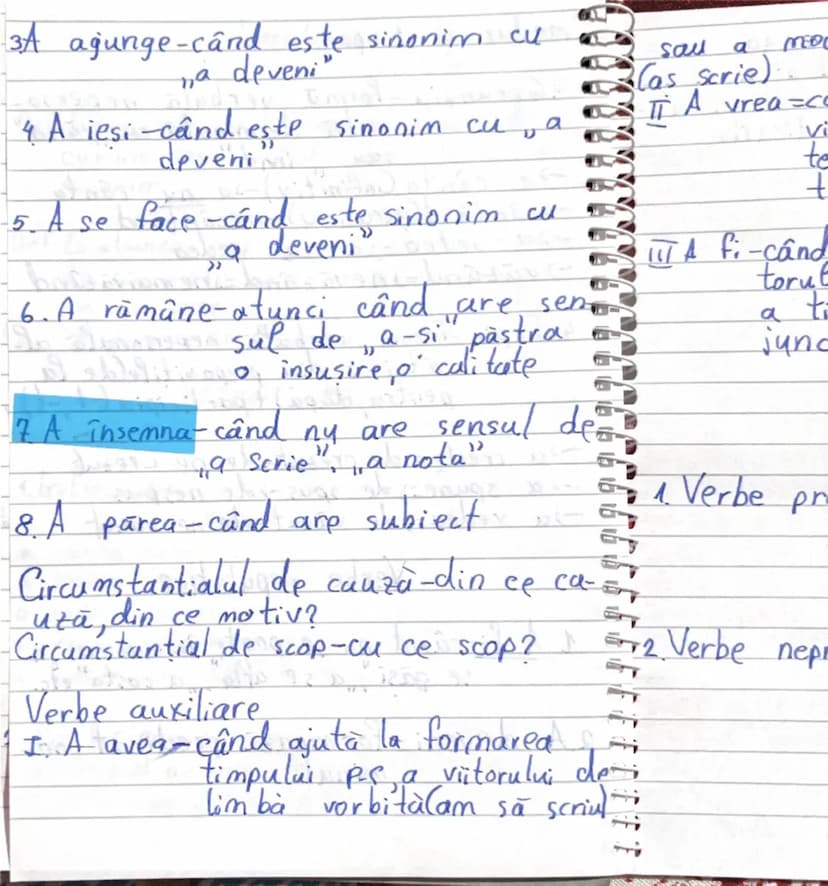 3A ajunge-când este sinonim cu
„a deveni"
4. A ieși-când este sinonim cu „a
deveni"
5. A se face-când este sinonim cu
„a deveni"
6. A rămâne-atunci când are sen-
sul de „a-si" păstra
o însușire, o calitate
7. A însemna-când nu are sensul de
„a scrie", „a nota"
8. A părea-când are subiect
Circumstanțialul de cauză-din ce ca-
uză, din ce motiv?
Circumstanțial de scop-cu ce scop?
Verbe auxiliare
I. A avea-când ajută la formarea
timpului pc, a viitorului de
limbă vorbită(am să scriu)
sau a
(as scrie)
II A vrea=
III A fi-când
a
1. Verbe
2. Verbe